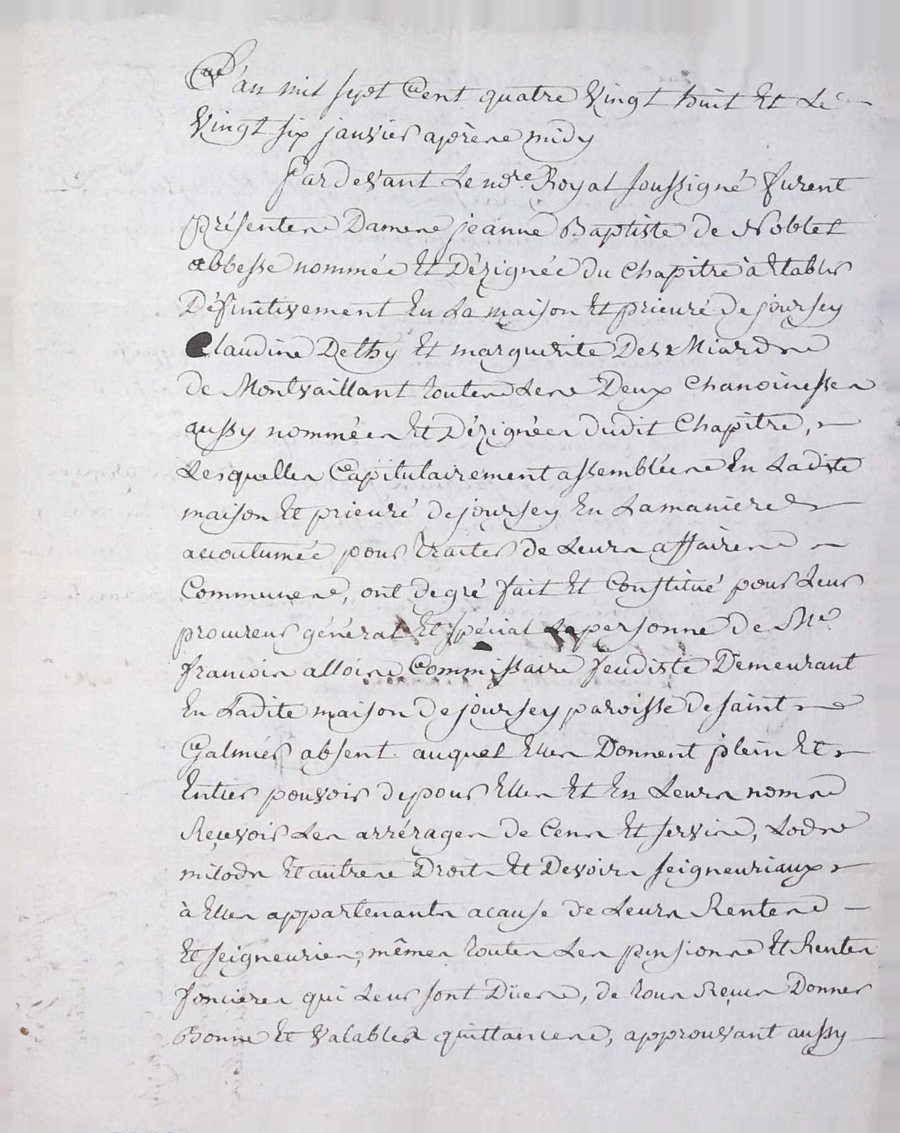 L'an mil sept Cent quatre Vingt huit Et Le
Vingt six janvier après midy
Pardevant Le nore Royal soussigné furent
présentes Dames jeanne Baptiste de Noblet
abbesse nommée Et Dézignée du Chapitre à Etablir
Définitivement En La maison Et prieuré de joursey
Claudine Dethy Et marguerite
de Montvaillant toutes Les Deux Chanoinesses
aussy nommées Et Dézignées dudit Chapitre,
Lesquelles Capitulairement assemblées En Ladite
maison Et prieuré de joursey En La manière
accoutumée pour traiter de Leurs affaires
Communes, ont de gré fait Et Constitué pour Leur
procureur général Et spécial La personne de Me
francois alloin Commissaire feudiste Demeurant
En Ladite maison de joursey paroisse de saint
Galmier absent auquel Elles Donnent plein Et
Entier pouvoir de pour Elles Et En Leurs noms
Recevoir Les arrérages de Cens Et servis, Lods
milods Et autres Droits Et Devoirs seigneuriaux
à Elles appartenants a cause de Leurs Rentes
Et seigneuries, mêmes toutes Les pensions Et Rentes
foncieres qui Leur sont Dües, de tous Recus Donner
Bonnes Et Valables quittances, approuvant aussy